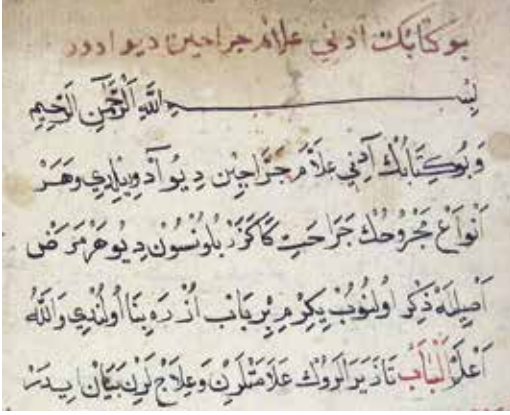 بو كتابك آدني علائم جراحين ديو اددور
بسم الله الرحمن الرحيم
وَبُوكِتَابُكْ آدِنِي عَلَائِمِ جَرَّاحِينْ دِيُو آدْ وِيرِلْدِي وَهَرْ
اَنْوَاعْ مَجْرُوحُكْ جَرَاحَتِ كَاكَزَرْ بُلُونْسُونْ دِيُو هَرْ مَرَضْ
اَصِيلَهْ ذِكْر اُولُنُوبْ يِكِرْمِ بِرْ بَابْ اُزَرَهْ بِنَا اُولُنْدِي وَاللّٰهُ
اَعْلَمْ اَلْبَابْ عَلَامَتْلَرِنْ وَعِلَاجْ لَرِنْ بَيَانْ اِيدَرْ